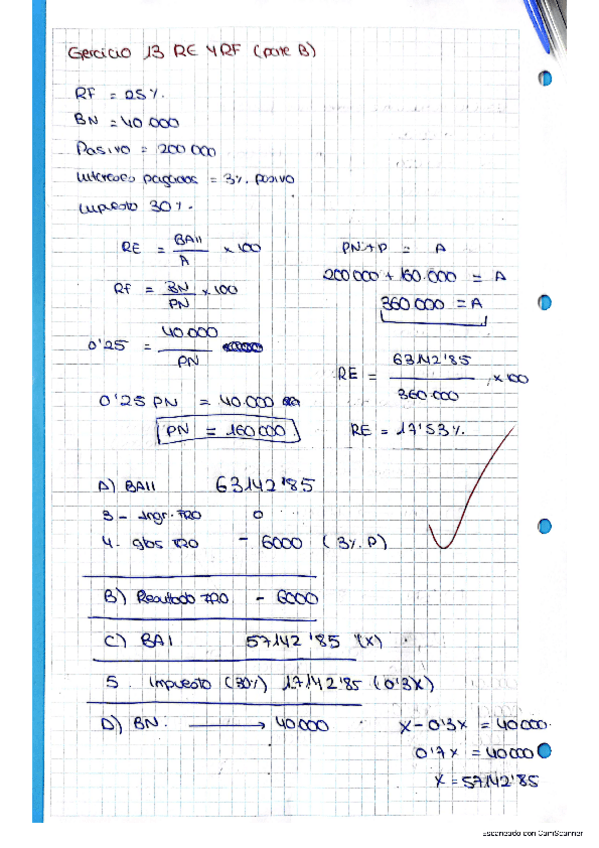 Ejercicio 13 RE Y RF (parte B)
RF = 25%.
BN = 40.000
Pasivo = 200.000
Intereses pagados = 3% pasivo
Impuesto 30%.
RE = BAII / A x 100
RF = BN / PN x 100
0'25 = 40.000 / PN
0'25 PN = 40.000
PN = 160.000
PN + P = A
200.000 + 160.000 = A
360.000 = A
RE = 63142'85 / 360.000 x 100
RE = 17'53%.
A) BAII 63142'85
3 - Ingr. FRO 0
4. gtos FRO - 6000 (3% P)
B) Resultado FRO - 6000
C) BAI 57142'85 (X)
5. Impuesto (30%) 17142'85 (0'3X)
D) BN. → 40.000
X - 0'3X = 40.000.
0'7X = 40000
X = 57142'85
Escaneado con CamScanner